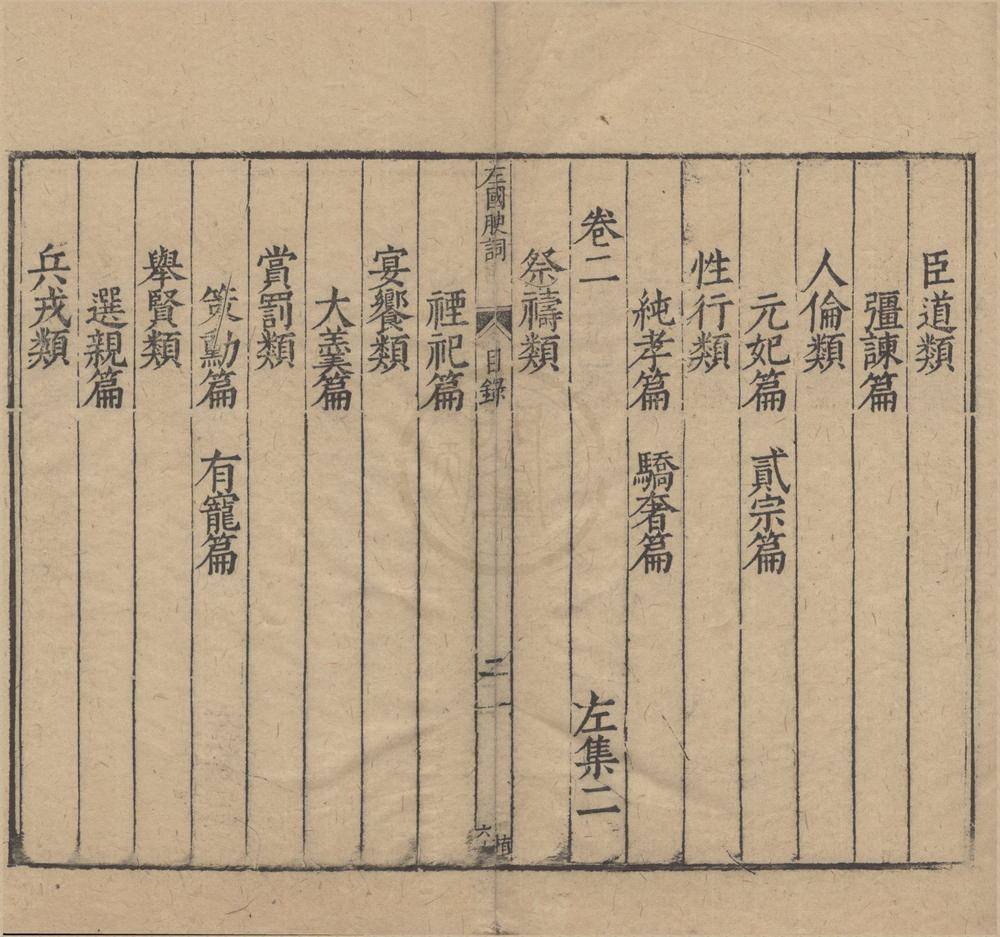 臣道類
彊諫篇
人倫類
元妃篇 貳宗篇
性行類
純孝篇 驕奢篇
卷二 左集二
祭禱類
左國腴詞 目錄 二
禋祀篇
宴饗類
大羹篇
賞罰類
策勳篇 有寵篇
舉賢類
選親篇
兵戎類